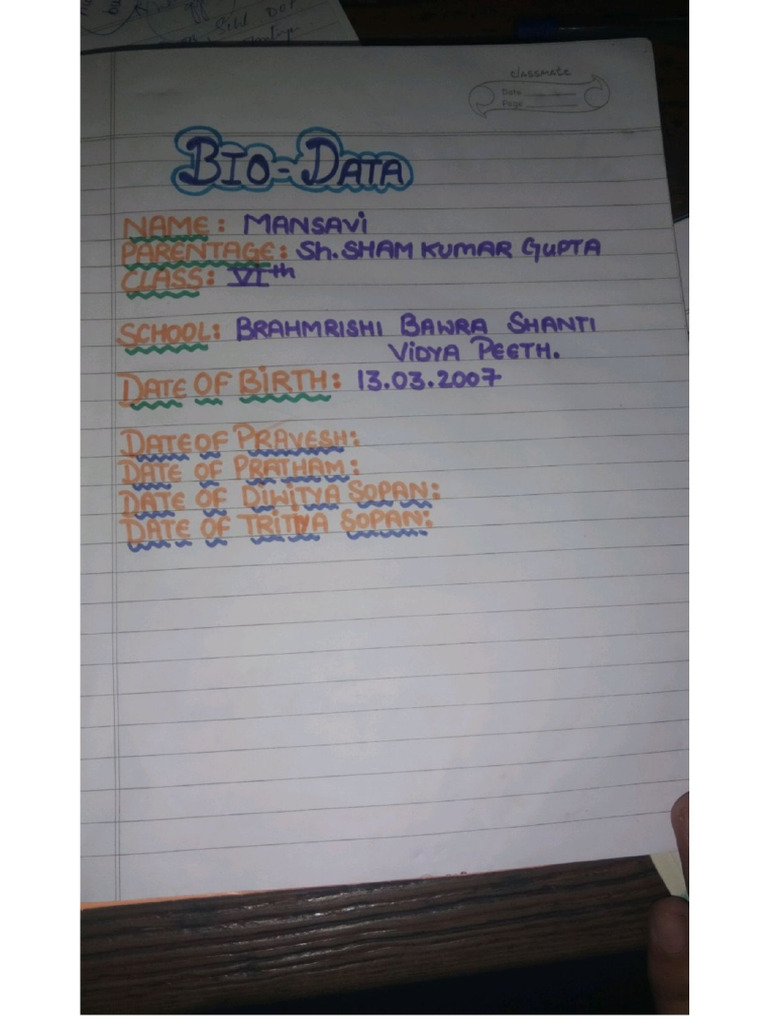 classmate
Date
Page
BIO-DATA
NAME: MANSAVI
PARENTAGE: Sh. SHAM KUMAR GUPTA
CLASS: VIth
SCHOOL: BRAHMRISHI BAWRA SHANTI
VIDYA PEETH.
DATE OF BIRTH: 13.03.2007
DATE OF PRAVESH:
DATE OF PRATHAM:
DATE OF DIWITYA SOPAN:
DATE OF TRITIYA SOPAN: